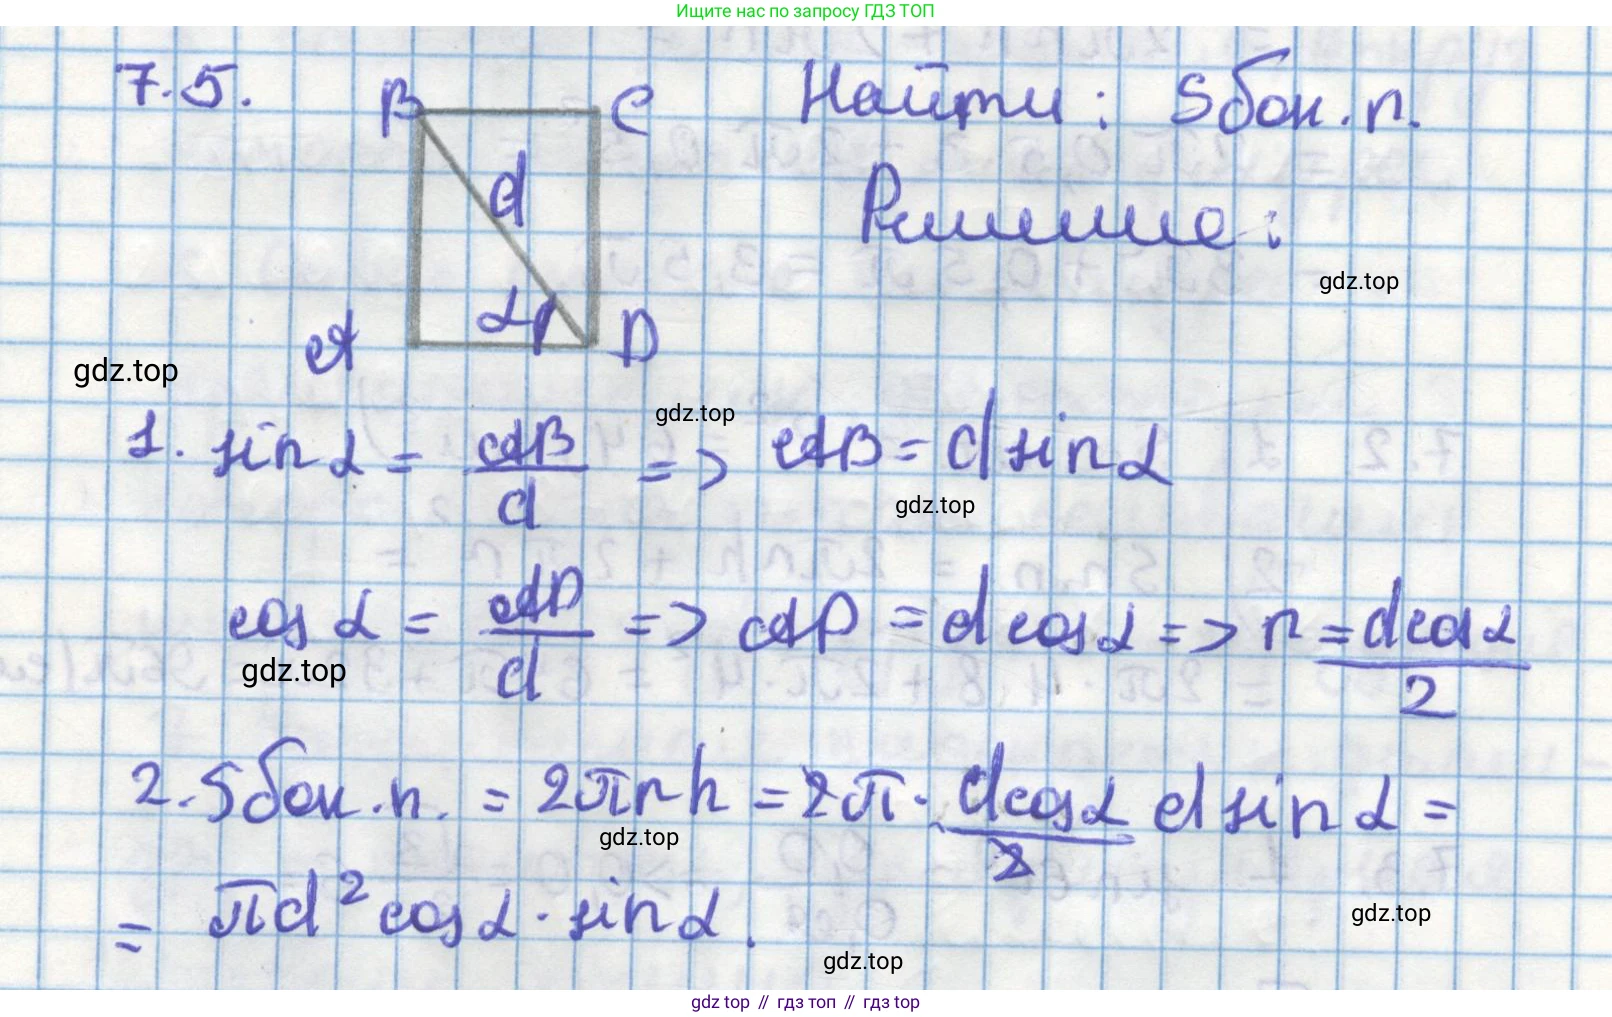 Ищите нас по запросу ГДЗ ТОП
7.5.
B
C
Найти: Sбок.п.
d
Решение:
gdz.top
α
A
D
gdz.top
gdz.top
1. sin α = AB/d => AB = d sin α
gdz.top
cos α = AD/d => AD = d cos α => r = d cos α/2
gdz.top
2. Sбок.п. = 2πrh = 2π · d cos α/2 d sin α =
gdz.top
= πd² cos α · sin α.
gdz.top
gdz.top
gdz top // гдз топ // гдз top